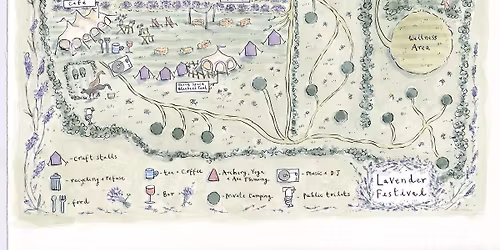 Cafe
Wellness
Area
- craft stalls
- tea + Coffee
- Archery, Yoga
+ Axe Throwing
- Music + DJ
- recycling + refuse
- Bar
- Private Camping
- Public toilets
- food
Lavender
Festival